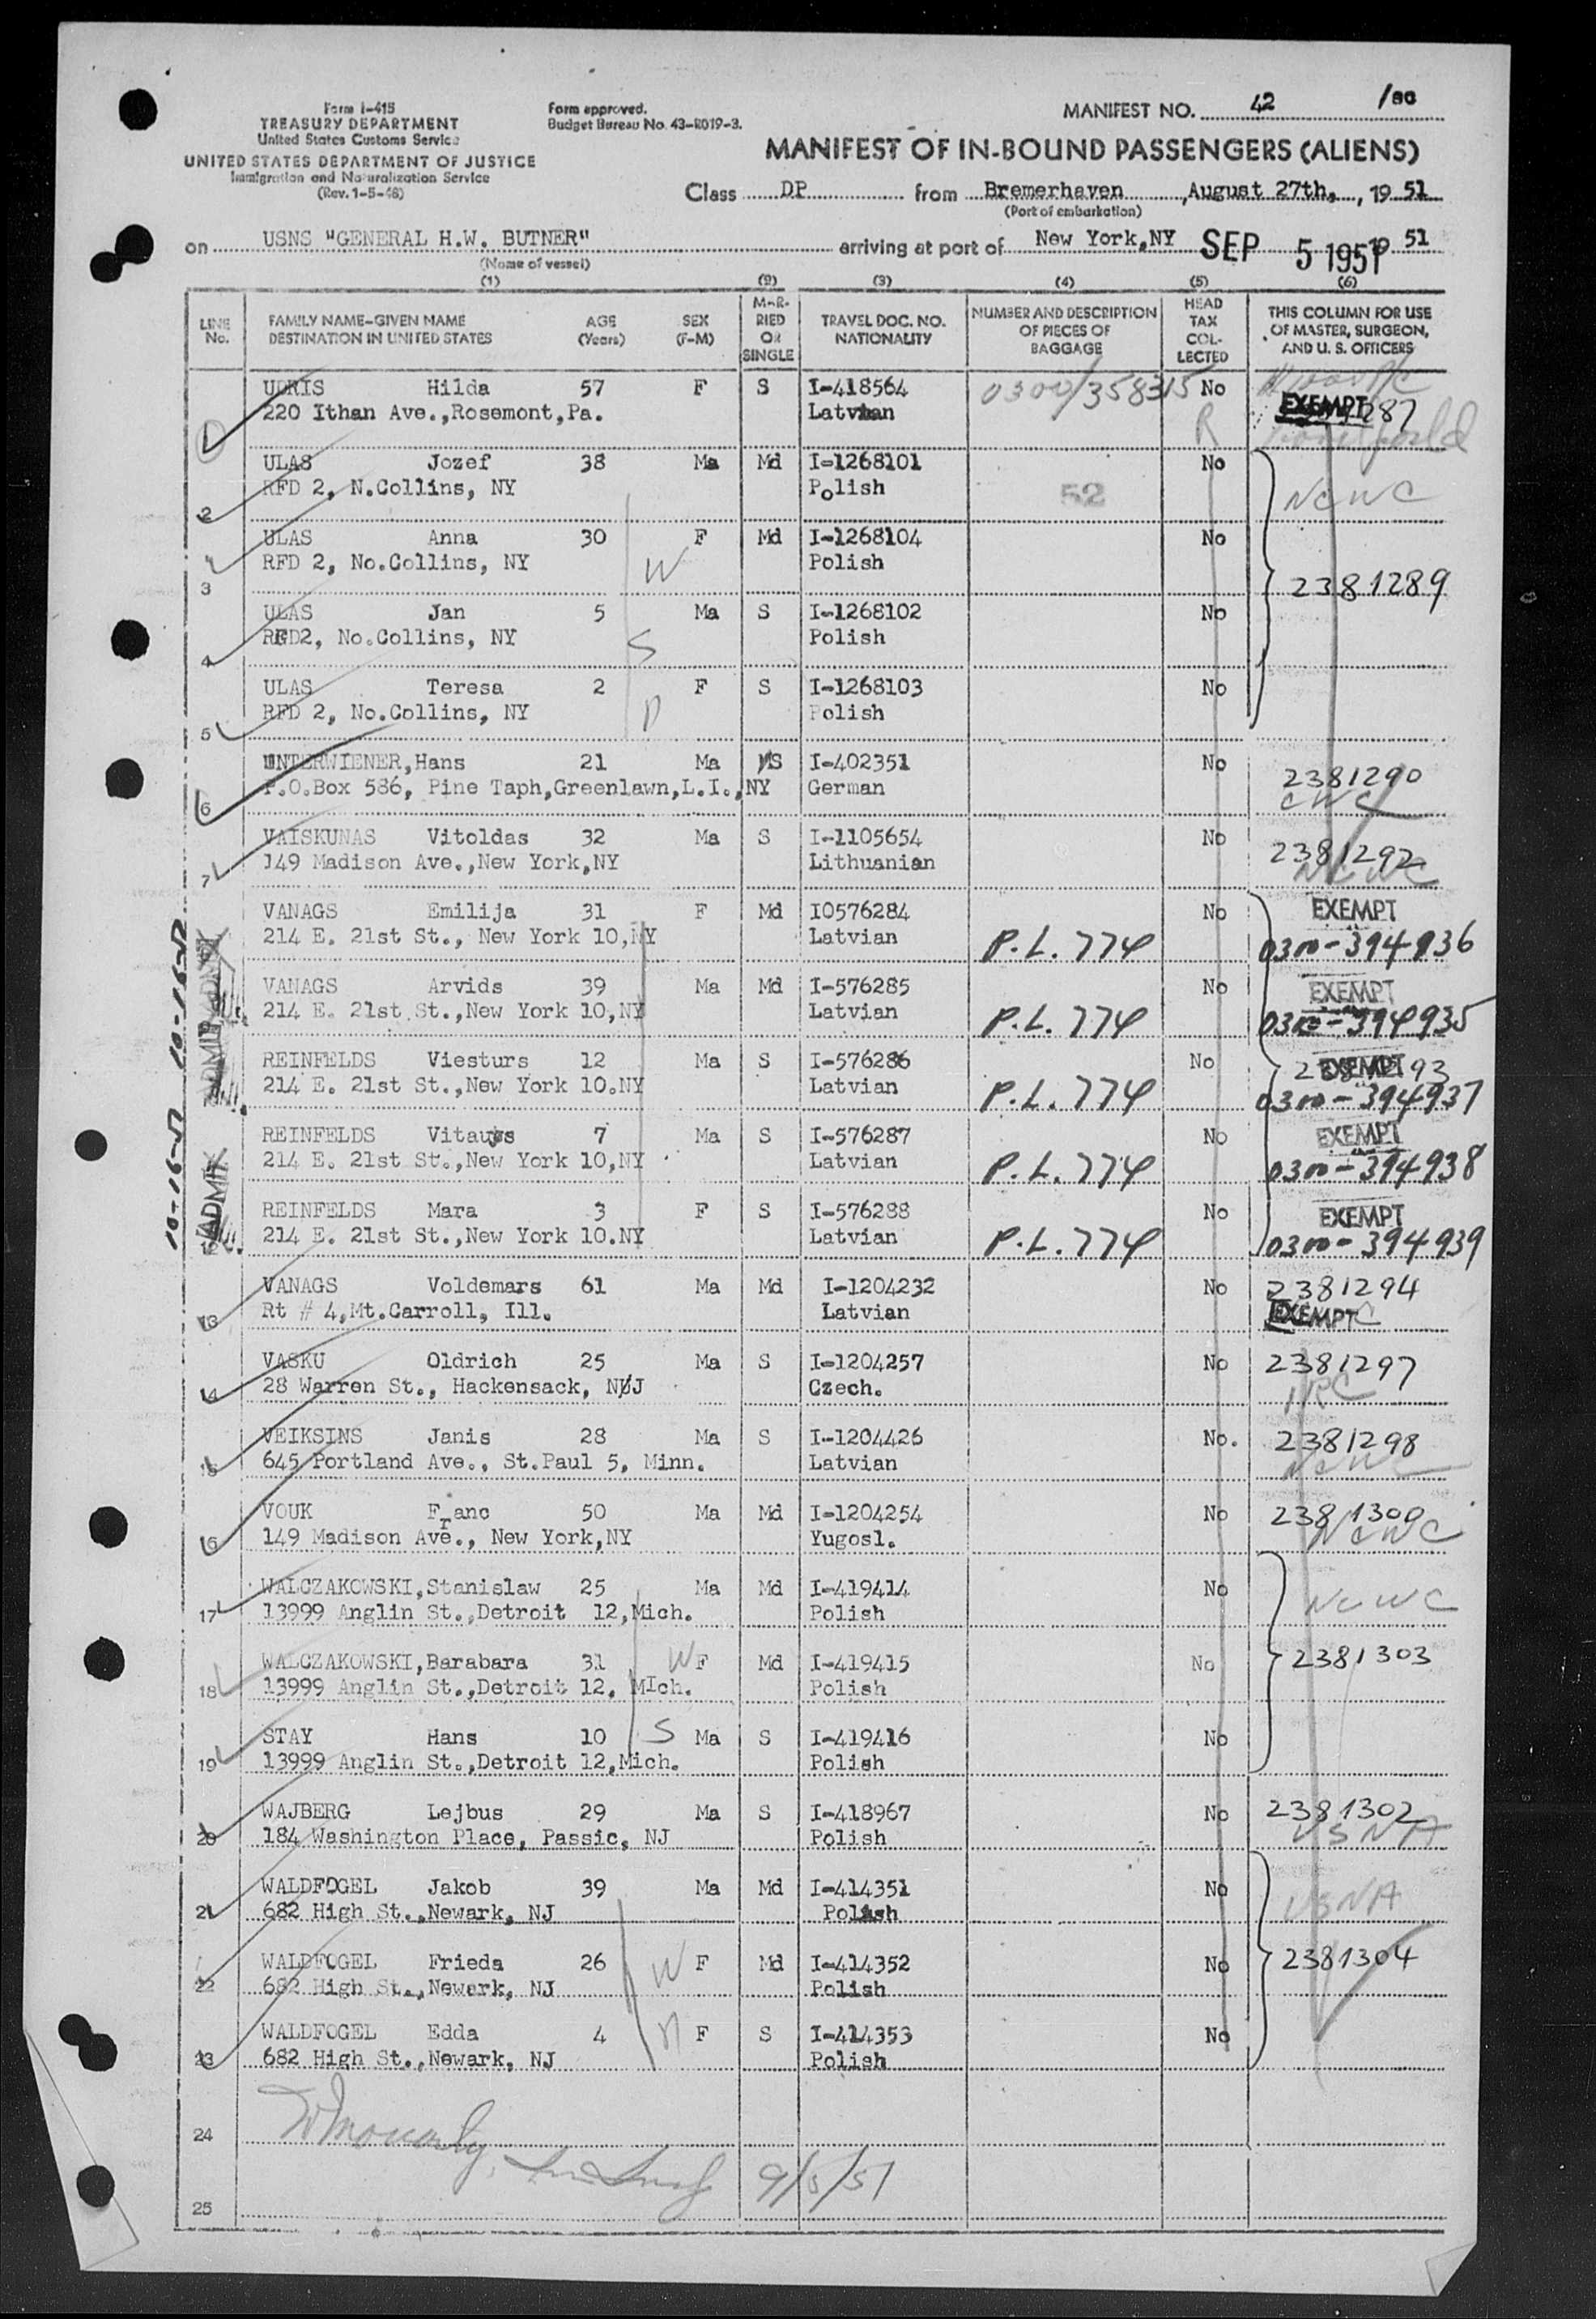 Form I-415
TREASURY DEPARTMENT
United States Customs Service
UNITED STATES DEPARTMENT OF JUSTICE
Immigration and Naturalization Service
(Rev. 1-5-48)
Form approved.
Budget Bureau No. 43-R019-3.
MANIFEST NO. 42
MANIFEST OF IN-BOUND PASSENGERS (ALIENS)
Class DP from Bremerhaven, August 27th, 19 51
(Port of embarkation)
on USNS "GENERAL H.W. BUTNER" arriving at port of New York,NY SEP 5 1951 19 51
(Name of vessel)
(1) (2) (3) (4) (5) (6)
LINE No. FAMILY NAME-GIVEN NAME DESTINATION IN UNITED STATES AGE (Years) SEX (F-M) MAR-RIED OR SINGLE TRAVEL DOC. NO. NATIONALITY NUMBER AND DESCRIPTION OF PIECES OF BAGGAGE HEAD TAX COL-LECTED THIS COLUMN FOR USE OF MASTER, SURGEON, AND U. S. OFFICERS
1 UDRIS Hilda 57 F S I-418564 0300/358315 No EXEMPT
220 Ithan Ave.,Rosemont,Pa. Latvian 287
R
2 ULAS Jozef 38 Ma Md I-1268101 No
RFD 2, N.Collins, NY Polish 52 NCWC
3 ULAS Anna 30 F Md I-1268104 No
RFD 2, No.Collins, NY W Polish 2381289
4 ULAS Jan 5 Ma S I-1268102 No
RFD2, No.Collins, NY S Polish
5 ULAS Teresa 2 F S I-1268103 No
RFD 2, No.Collins, NY D Polish
6 UNTERWIENER,Hans 21 Ma S I-402351 No 2381290
P.O.Box 586, Pine Taph,Greenlawn,L.I.,NY German CWC
7 VAISKUNAS Vitoldas 32 Ma S I-1105654 No 2381292
149 Madison Ave.,New York,NY Lithuanian NCWC
VANAGS Emilija 31 F Md I0576284 No EXEMPT
214 E. 21st St., New York 10,NY Latvian P.L. 774 0300-394936
VANAGS Arvids 39 Ma Md I-576285 No EXEMPT
214 E. 21st St.,New York 10,NY Latvian P.L. 774 0300-394935
REINFELDS Viesturs 12 Ma S I-576286 No EXEMPT 2381293
214 E. 21st St.,New York 10.NY Latvian P.L. 774 0300-394937
REINFELDS Vitauts 7 Ma S I-576287 No EXEMPT
214 E. 21st St.,New York 10,NY Latvian P.L. 774 0300-394938
REINFELDS Mara 3 F S I-576288 No EXEMPT
214 E. 21st St.,New York 10.NY Latvian P.L. 774 0300-394939
10-16-52 10-16-52
13 VANAGS Voldemars 61 Ma Md I-1204232 No 2381294
Rt # 4,Mt.Carroll, Ill. Latvian EXEMPT
14 VASKU Oldrich 25 Ma S I-1204257 No 2381297
28 Warren St., Hackensack, NJ Czech. IRC
15 VEIKSINS Janis 28 Ma S I-1204426 No. 2381298
645 Portland Ave., St.Paul 5, Minn. Latvian NCWC
16 VOUK Franc 50 Ma Md I-1204254 No 2381300
149 Madison Ave., New York,NY Yugosl. NCWC
17 WALCZAKOWSKI,Stanislaw 25 Ma Md I-419414 No
13999 Anglin St.,Detroit 12,Mich. Polish NCWC
18 WALCZAKOWSKI,Barabara 31 W F Md I-419415 No 2381303
13999 Anglin St.,Detroit 12, MIch. Polish
19 STAY Hans 10 S Ma S I-419416 No
13999 Anglin St.,Detroit 12,Mich. Polish
20 WAJBERG Lejbus 29 Ma S I-418967 No 2381302
184 Washington Place, Passic, NJ Polish USNA
21 WALDFOGEL Jakob 39 Ma Md I-414351 No
682 High St.,Newark, NJ Polish USNA
22 WALDFOGEL Frieda 26 W F Md I-414352 No 2381304
682 High St.,Newark, NJ Polish
23 WALDFOGEL Edda 4 D F S I-414353 No
682 High St.,Newark, NJ Polish
24
25 9/5/51